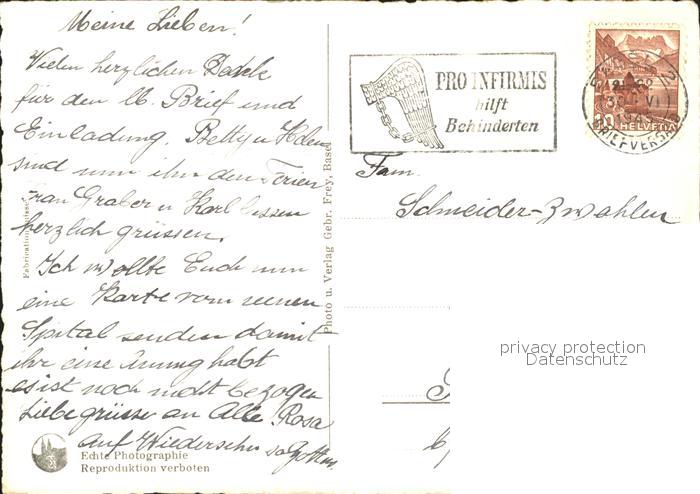 Meine Lieben!
Vielen herzlichen Dank
für den lb. Brief und
Einladung. Betty u Helen
sind nun in den Ferien
Frau Graber u Karl lassen
herzlich grüssen.
Ich wollte Euch nun
eine Karte vom neuen
Spital senden damit
ihr eine Anung habt
es ist noch nicht bezogen
Liebe grüsse an Alle Rosa
auf Wiedersehn so Gott
Echte Photographie
Reproduktion verboten
Photo u. Verlag Gebr. Frey, Basel
PRO INFIRMIS
hilft
Behinderten
BASEL 2
BRIEFVERSAND
10 HELVETIA
Fam.
Schneider-Zwahlen
privacy protection
Datenschutz